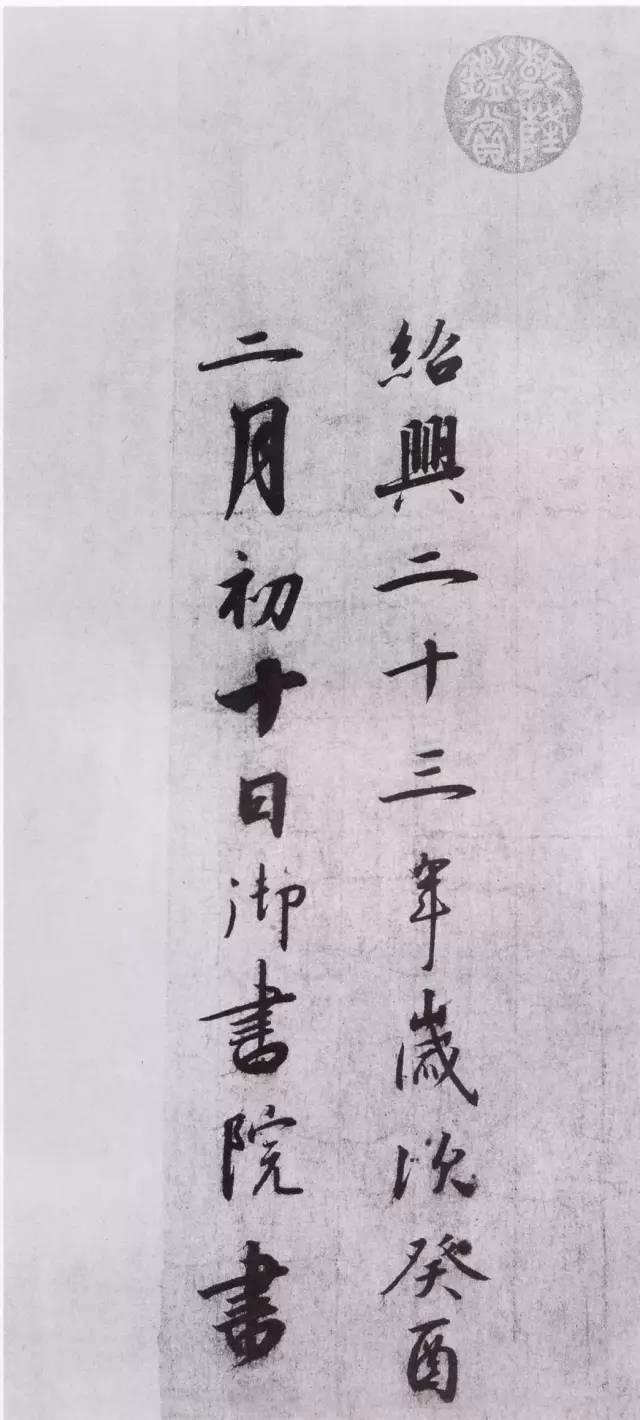 乾隆
鑑賞
紹興二十三年歲次癸酉
二月初十日御書院書